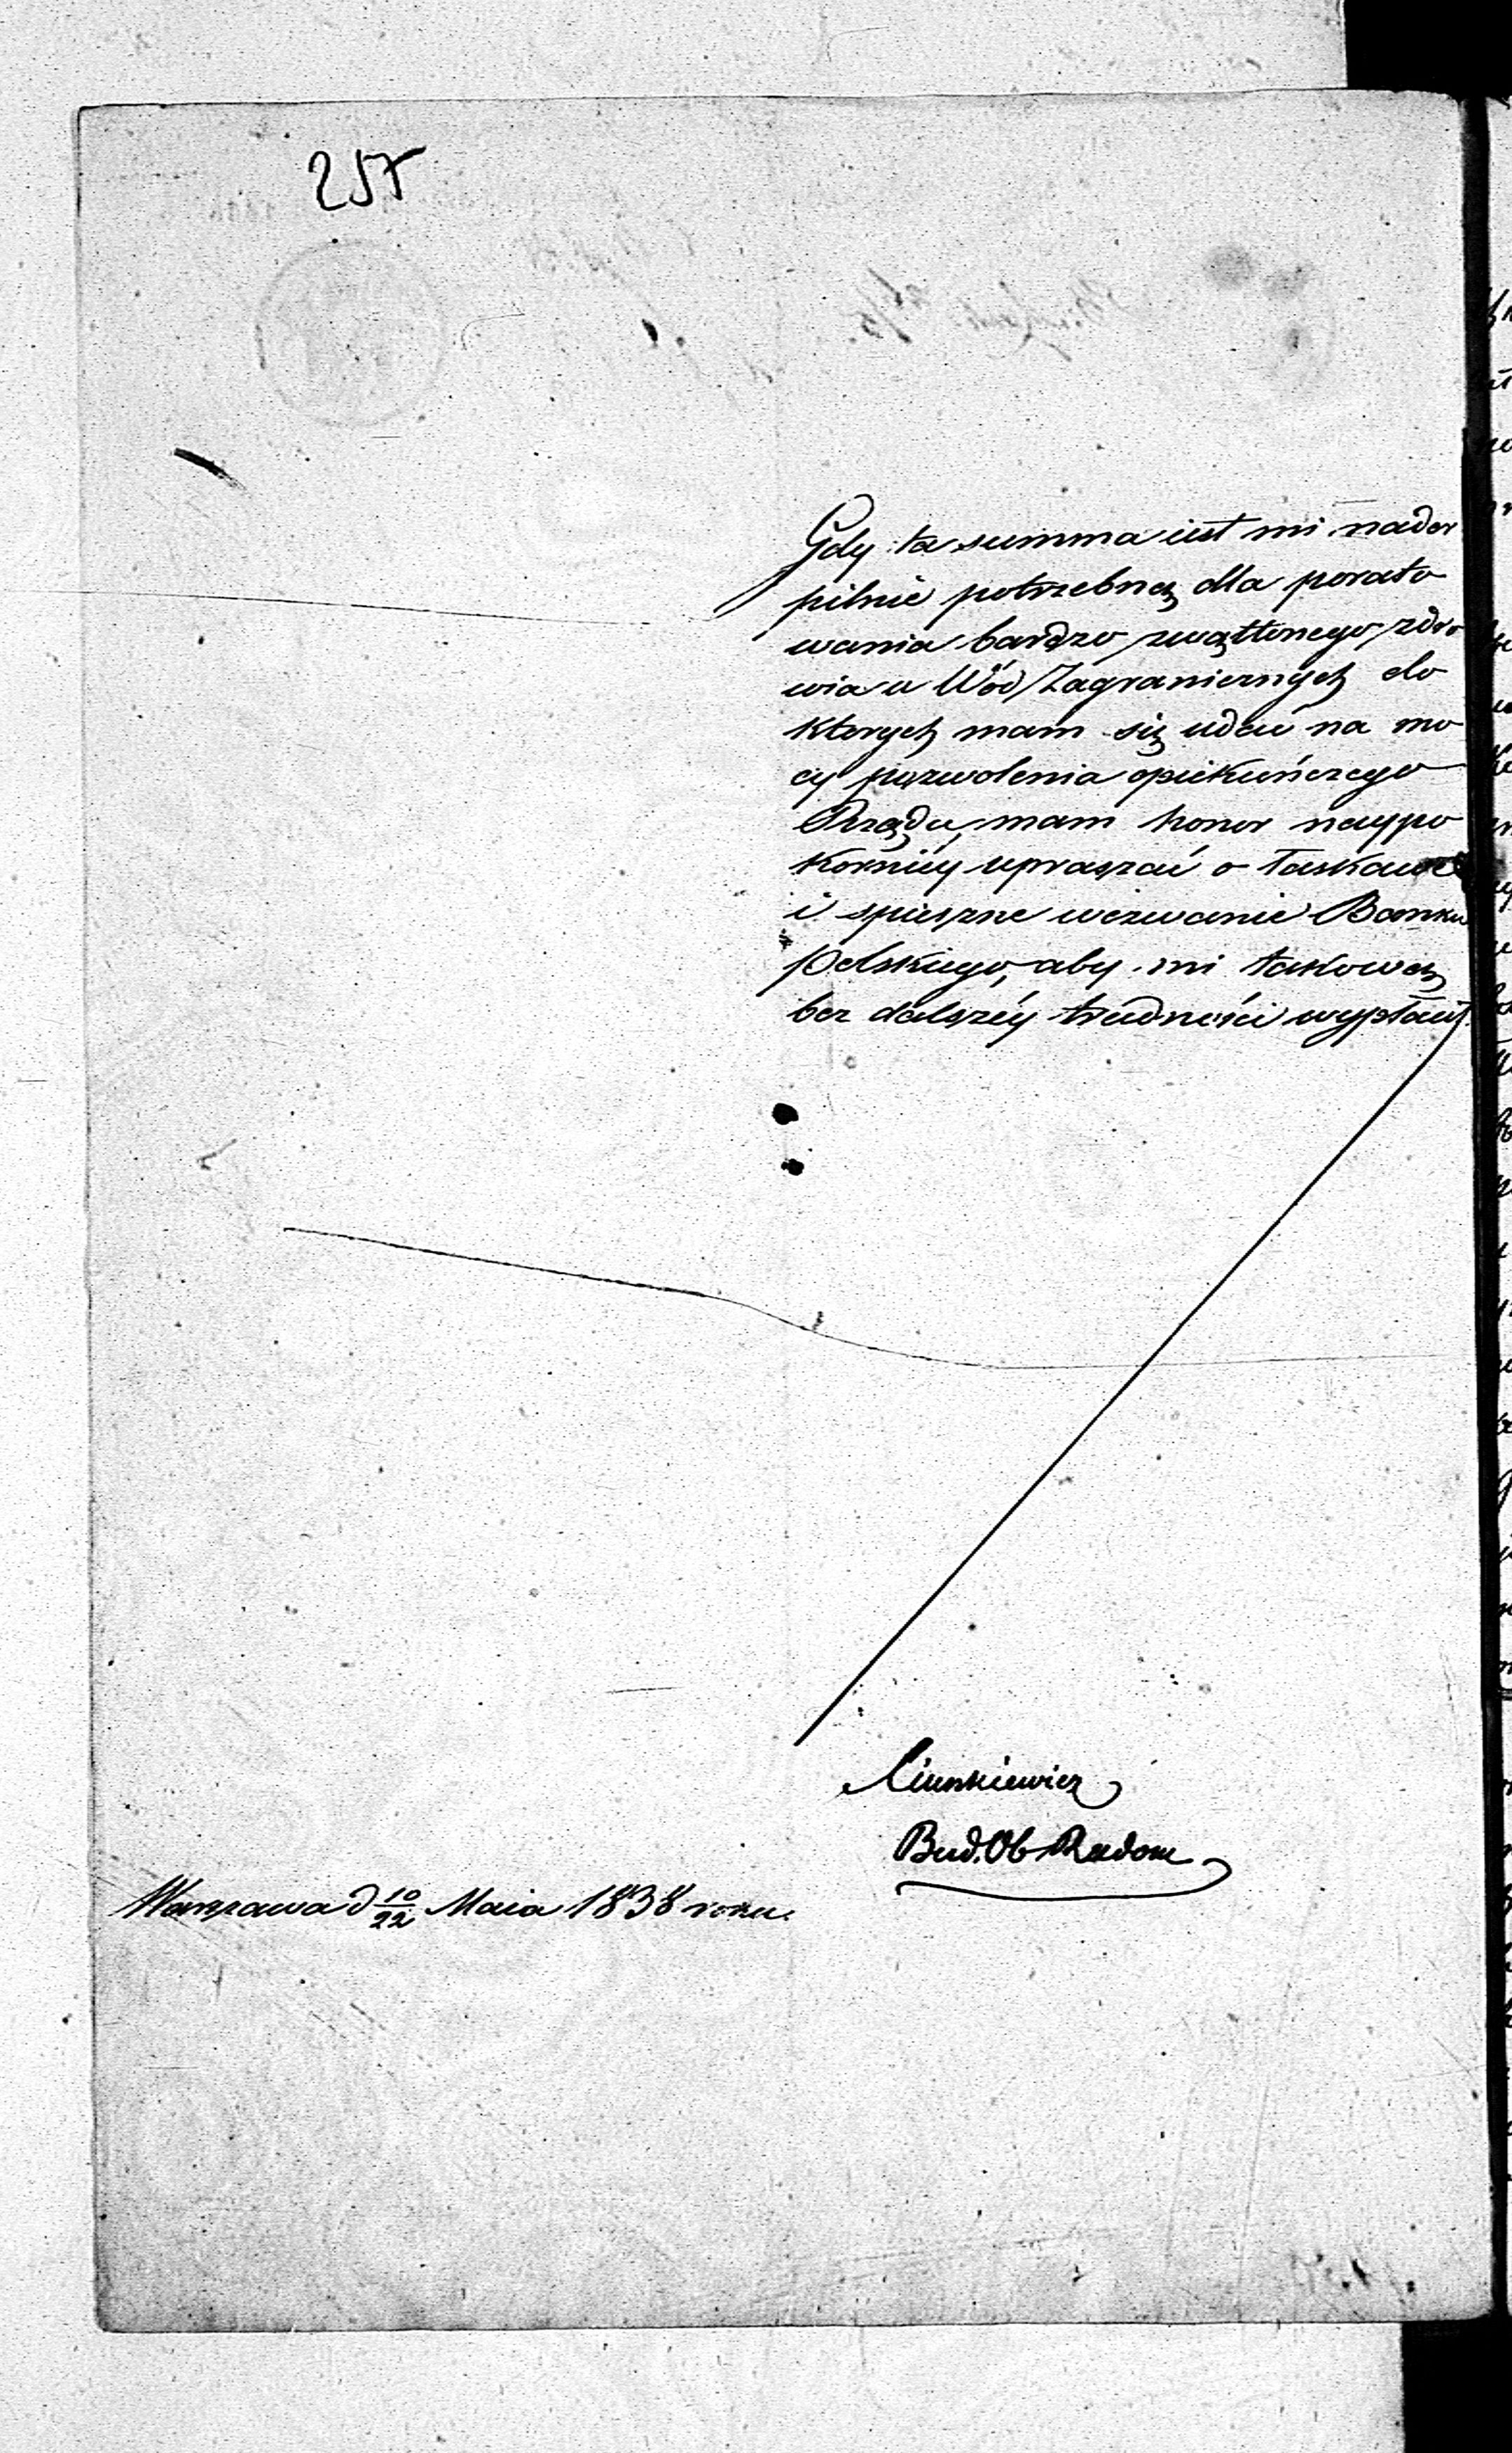 257
Gdy ta summa iest mi nader
pilnie potrzebną dla porato
wania bardzo zwątlonego zdro
wia u Wód Zagranicznych do
ktorych mam się udać na mo
cy pozwolenia opiekuńczego
Rządu, mam honor naypo
korniey upraszać o łaskawe
i spieszne wezwanie Banku
Polskiego, aby mi takową
bez dalszéy trudności wypłacił.
Bud. Ob Radom
Warszawa d 10/22 Maia 1838 roku.